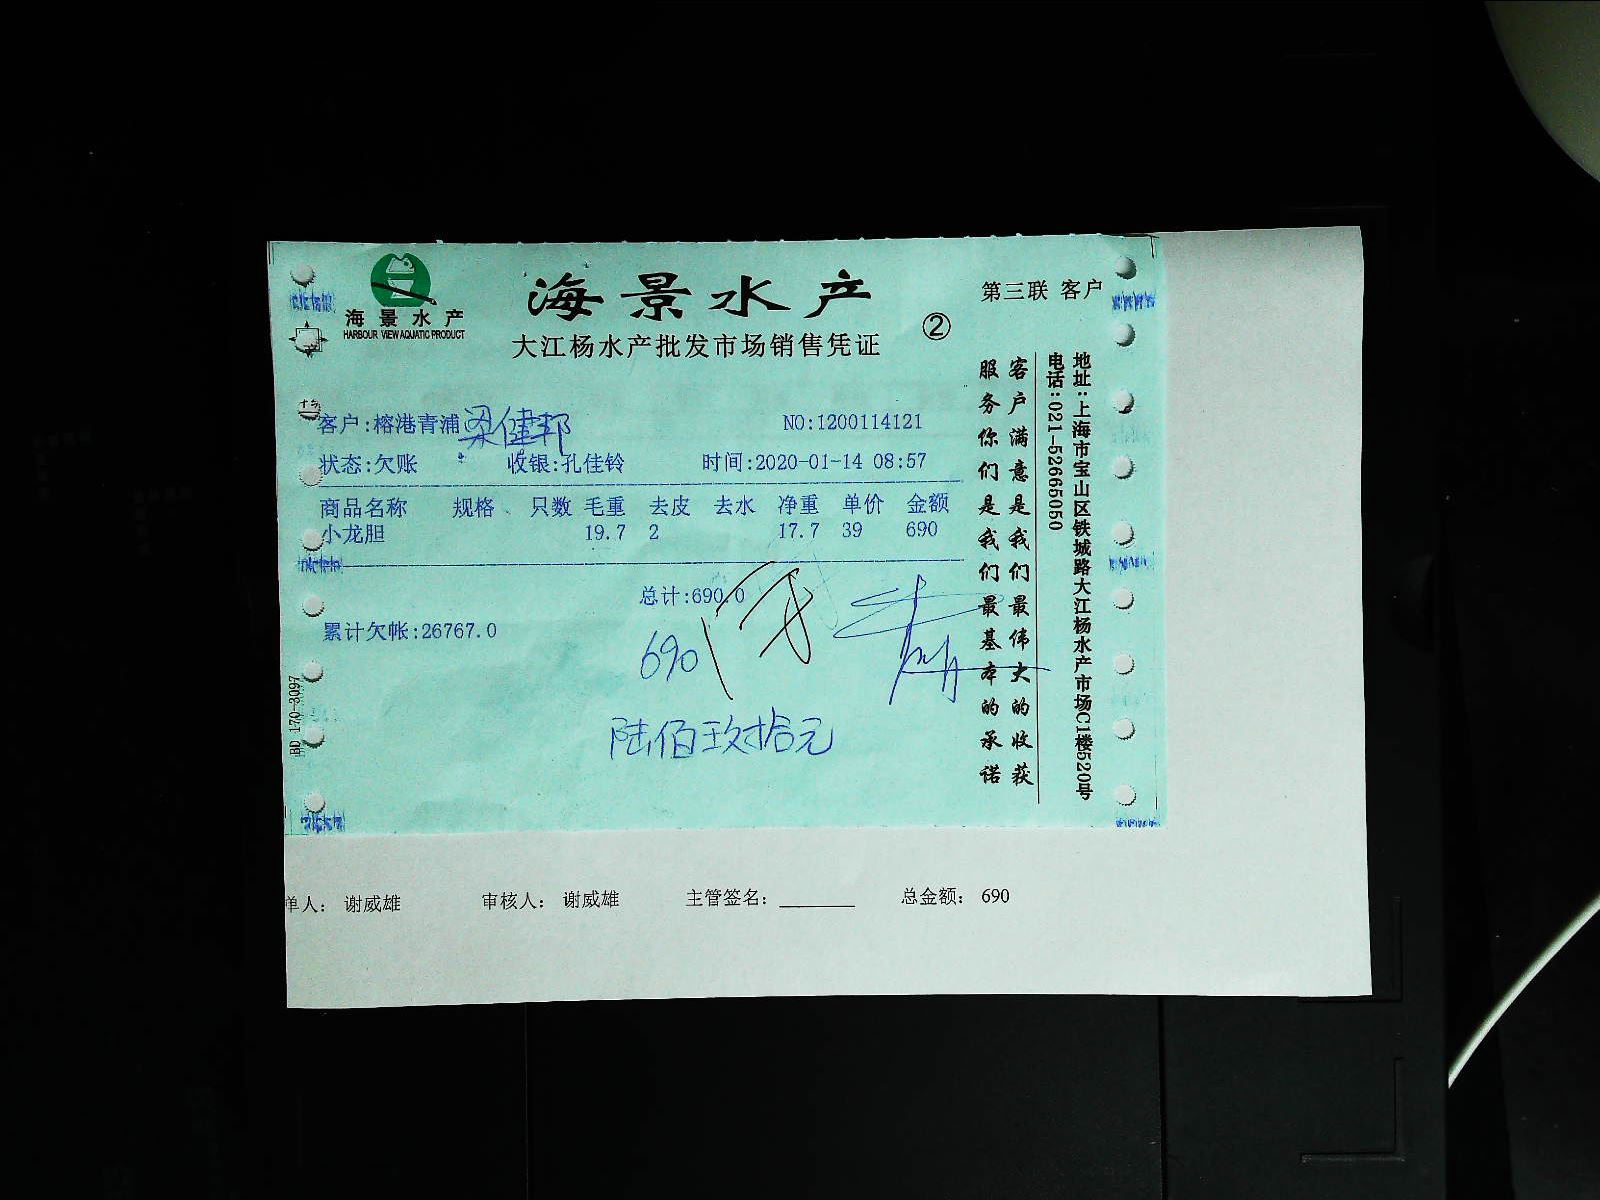 海景水产
HARBOUR VIEW AQUATIC PRODUCT
海景水产
大江杨水产批发市场销售凭证
②
第三联 客户
客户:榕港青浦 梁健邦
NO:1200114121
状态:欠账 收银:孔佳铃 时间:2020-01-14 08:57
商品名称 规格 只数 毛重 去皮 去水 净重 单价 金额
小龙胆 19.7 2 17.7 39 690
总计:690.0
累计欠帐:26767.0
690
陆佰玖拾元
客户满意是我们最伟大的收获
服务你们是我们最基本的承诺
地址:上海市宝山区铁城路大江杨水产市场C1楼520号
电话:021-52665050
BD 170-3097
单人: 谢威雄 审核人: 谢威雄 主管签名: 总金额: 690